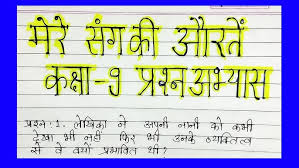 मेरे संग की औरतें
कक्षा-9 प्रश्न अभ्यास
प्रश्न:1. लेखिका ने अपनी नानी को कभी
देखा भी नहीं फिर भी उनके व्यक्तित्व
से वे क्यों प्रभावित थी ?